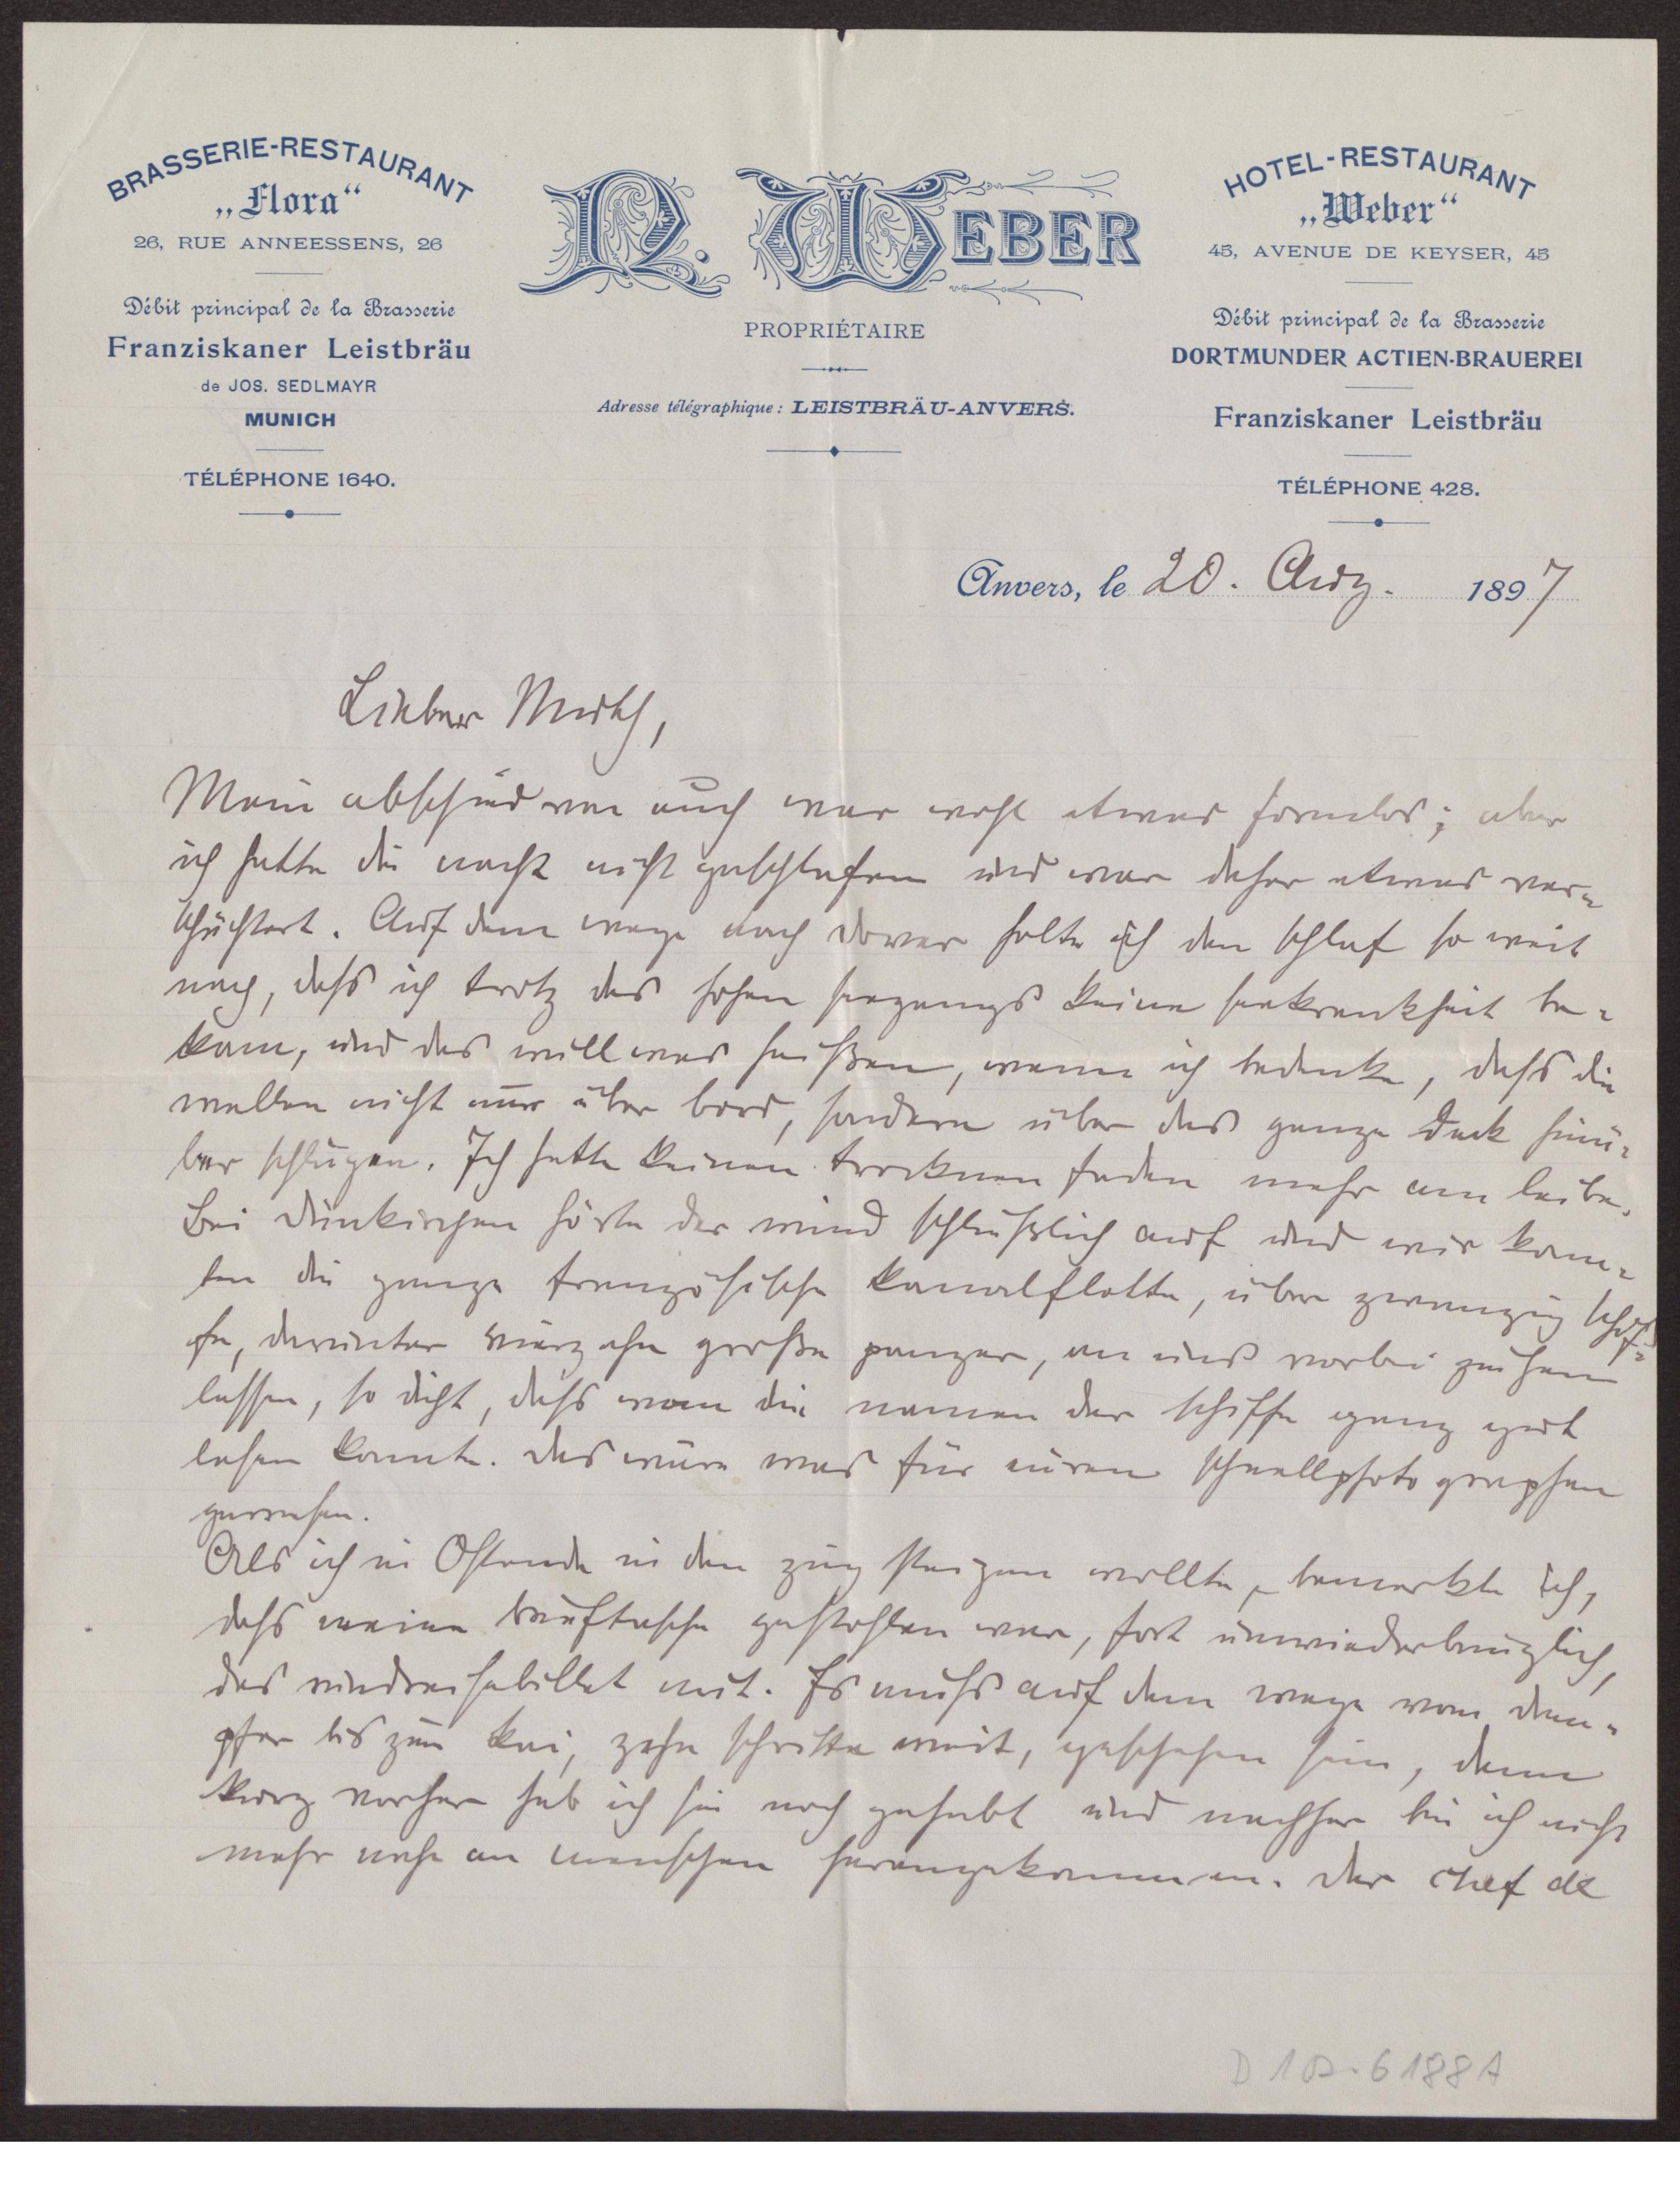 BRASSERIE-RESTAURANT
„Flora“
26, RUE ANNEESSENS, 26
Débit principal de la Brasserie
Franziskaner Leistbräu
de JOS. SEDLMAYR
MUNICH
TÉLÉPHONE 1640.
N. WEBER
PROPRIÉTAIRE
Adresse télégraphique: LEISTBRÄU-ANVERS.
HOTEL-RESTAURANT
„Weber“
45, AVENUE DE KEYSER, 45
Débit principal de la Brasserie
DORTMUNDER ACTIEN-BRAUEREI
Franziskaner Leistbräu
TÉLÉPHONE 428.
Anvers, le 20. Aug. 1897
Lieber
Mein abschied von euch war wohl etwas formlos; aber
ich hatte die nacht nicht geschlafen und war daher etwas ver-
schüchtert. Auf dem wege nach Dover holte ich den schlaf so weit
nach, dass ich trotz des hohen seegangs keine seekrankheit be-
kam, und das will was heißen, wenn ich bedenke, dass die
wellen nicht nur über bord, sondern über das ganze deck hinü-
ber schlugen. Ich hatte keinen trocknen faden mehr am leibe.
Bei Dünkirchen hörte der wind schließlich auf und wir konn-
ten die ganze französische Kanalflotte, über zwanzig schif-
fe, darunter vierzehn große panzer, an uns vorbei ziehen
lassen, so dicht, dass man die namen der schiffe ganz gut
lesen konnte. Das wäre was für euren schnellphotographen
gewesen.
Als ich in Ostende in den zug steigen wollte, bemerkte ich,
dass meine brieftasche gestohlen war, fort unwiederbringlich,
das rundreisebillet mit. Es muss auf dem wege vom dam-
pfer bis zum kai, zehn schritte weit, geschehen sein, denn
kurz vorher hab ich sie noch gehabt und nachher bin ich nicht
mehr nahe an menschen herangekommen. Der chef de
D 6188A